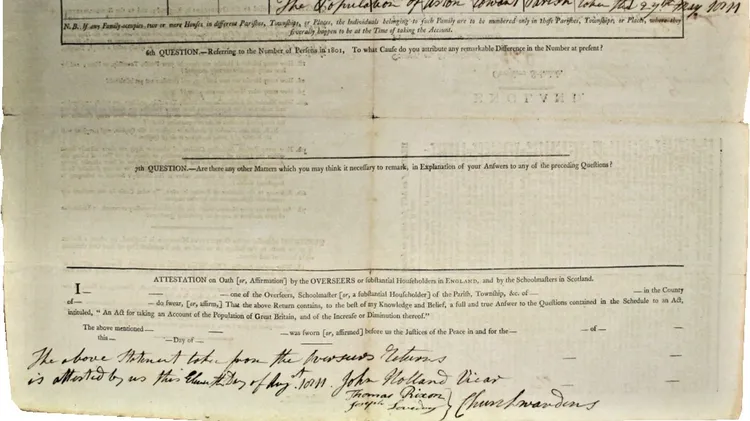 The Population of Aston Rowant Parish taken the 29th May 1811
N. B. If any Family occupies two or more Houses in different Parishes, Townships, or Places, the Individuals belonging to such Family are to be numbered only in those Parishes, Townships, or Places, where they
severally happen to be at the Time of taking the Account.
6th QUESTION.—Referring to the Number of Persons in 1801, To what Cause do you attribute any remarkable Difference in the Number at present?
7th QUESTION.—Are there any other Matters which you may think it necessary to remark, in Explanation of your Answers to any of the preceding Questions?
ATTESTATION on Oath [or, Affirmation] by the OVERSEERS or substantial Householders in ENGLAND, and by the Schoolmasters in Scotland.
I —
— one of the Overseers, Schoolmaster [or, a substantial Householder] of the Parish, Township, &c. of — — in the County
of — — do swear, [or, affirm,] That the above Return contains, to the best of my Knowledge and Belief, a full and true Answer to the Questions contained in the Schedule to an Act,
intituled, “ An Act for taking an Account of the Population of Great Britain, and of the Increase or Diminution thereof.”
The above mentioned — — was sworn [or, affirmed] before us the Justices of the Peace in and for the — — of —
this — — Day of —
The above Statement taken from the Overseers Returns
is attested by us this Eleventh Day of Augst. 1811. John Holland Vicar
Thomas Rixon
Joseph Loveday } Churchwardens